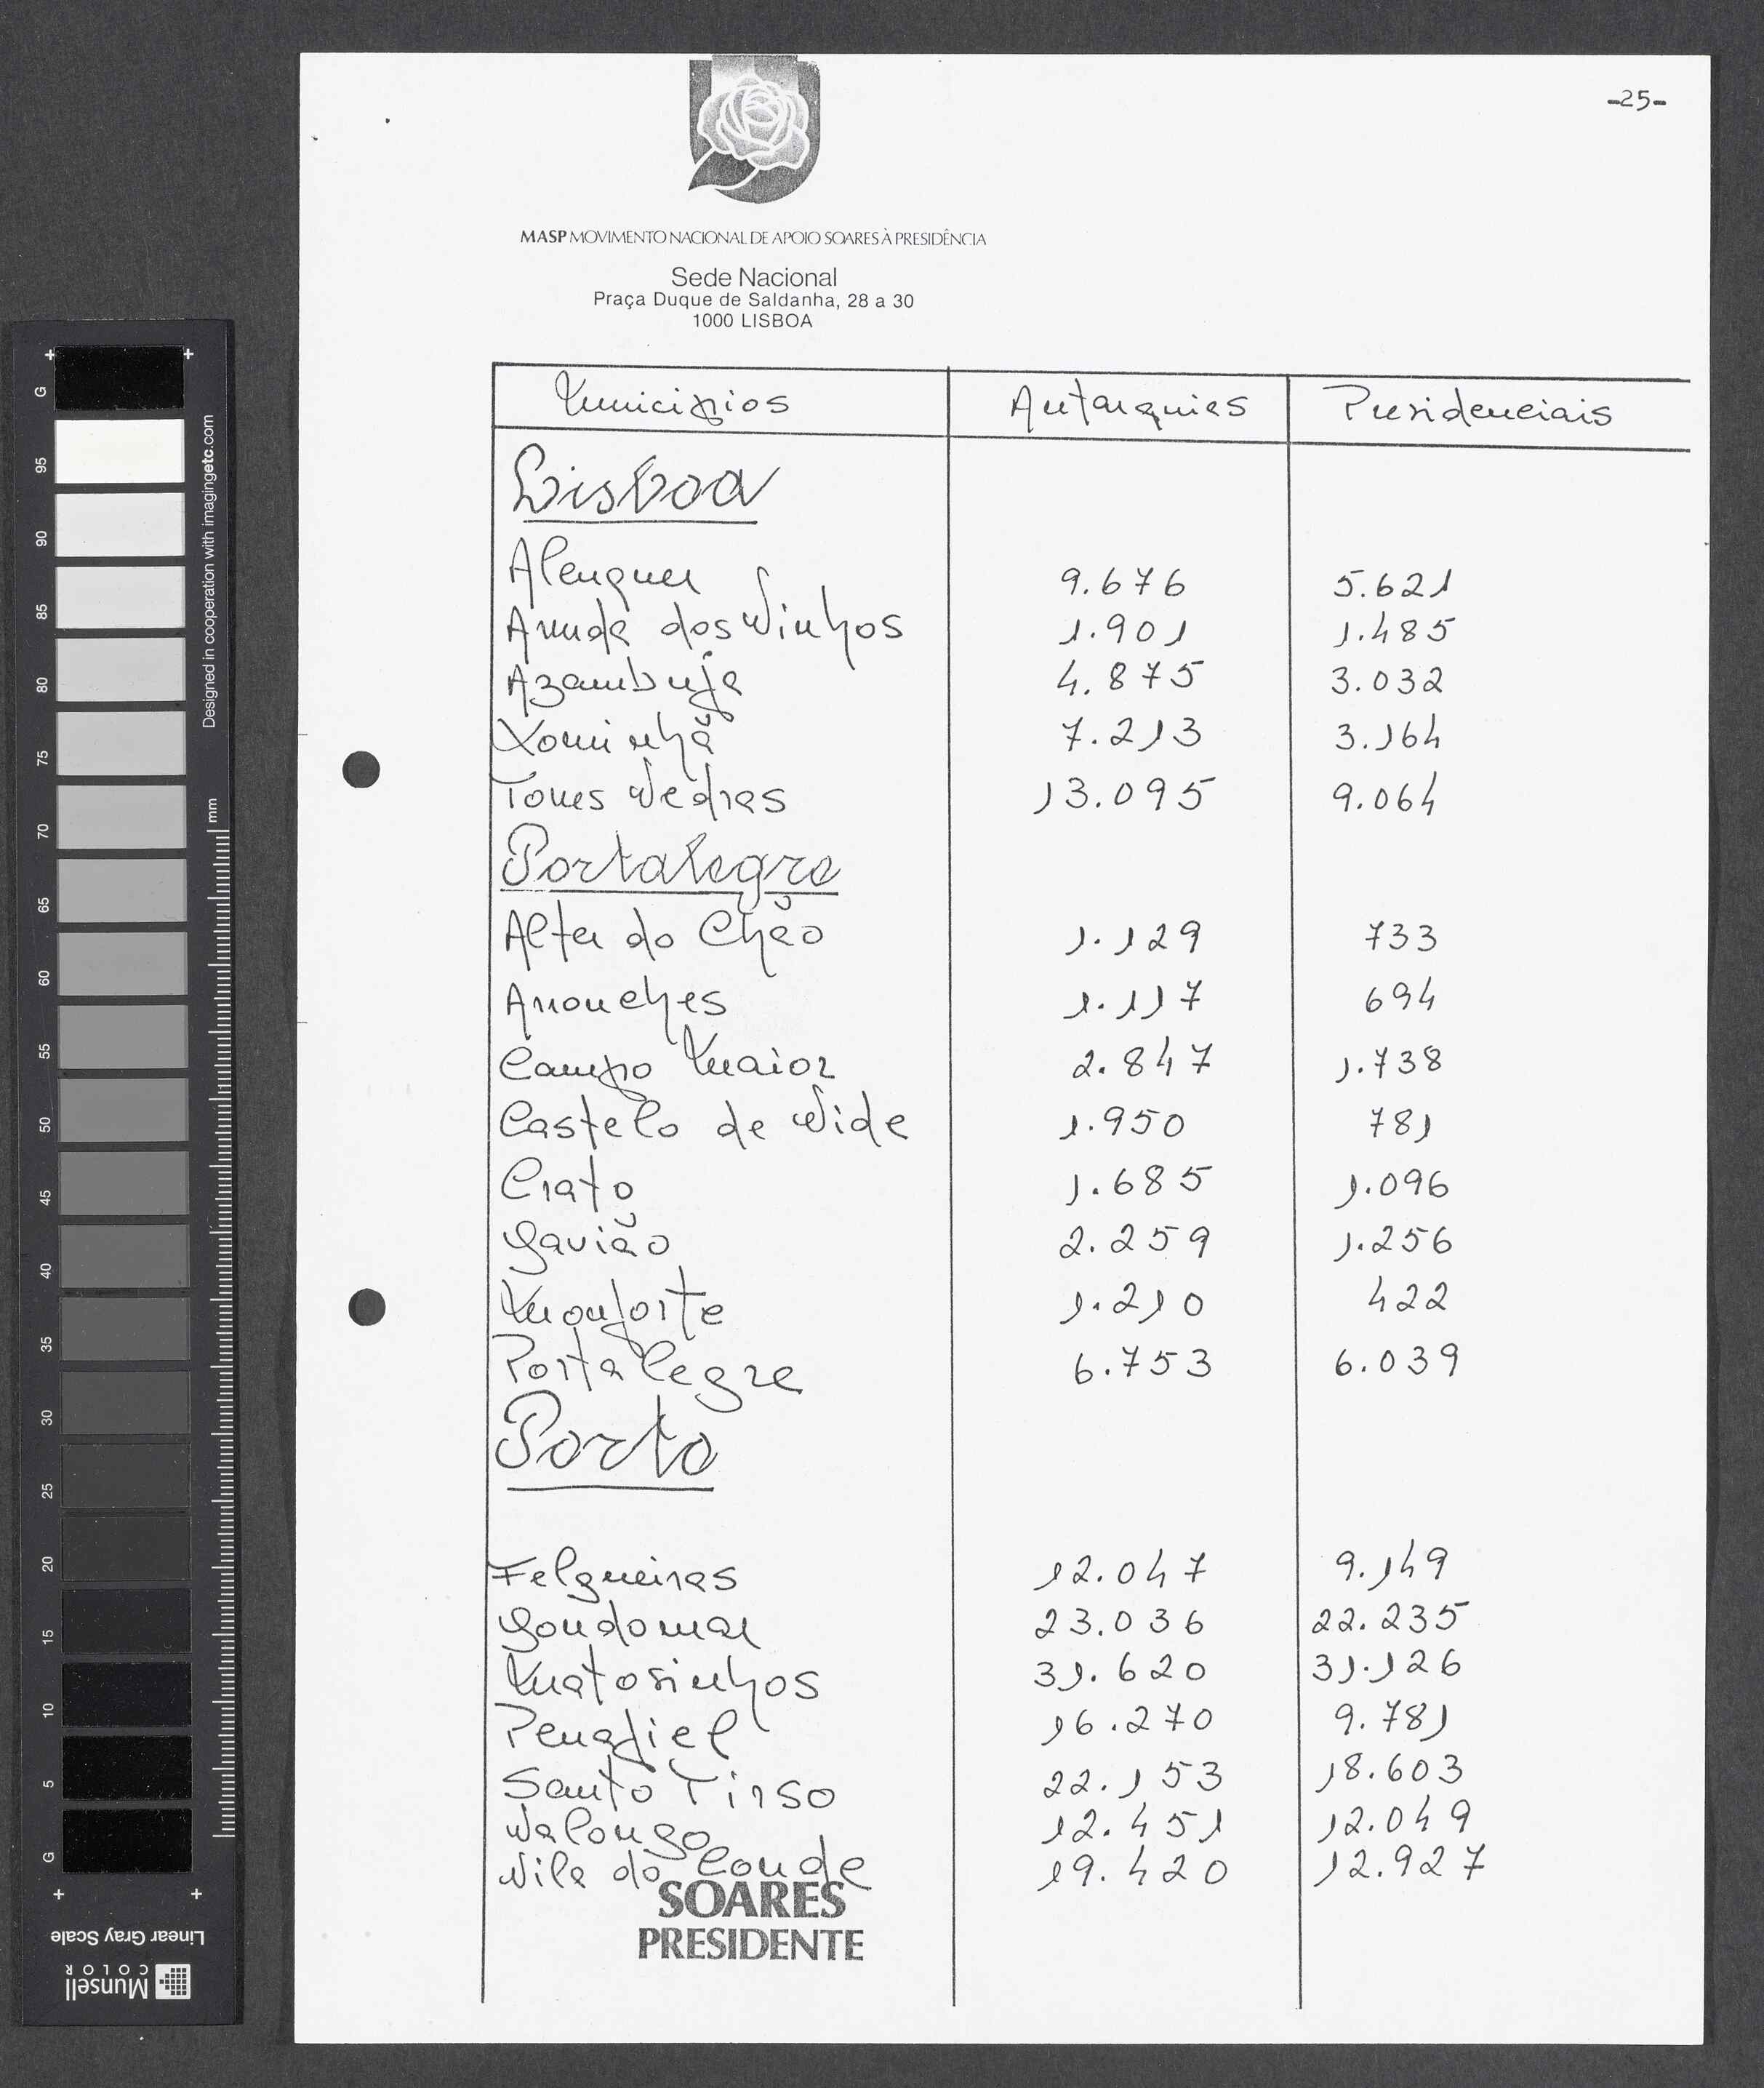 -25-
MASP MOVIMENTO NACIONAL DE APOIO SOARES À PRESIDÊNCIA
Sede Nacional
Praça Duque de Saldanha, 28 a 30
1000 LISBOA
Municípios Autarquias Presidenciais
Lisboa
Alenquer 9.676 5.621
Arruda dos Vinhos 1.901 1.485
Azambuja 4.875 3.032
Lourinhã 7.213 3.164
Torres Vedras 13.095 9.064
Portalegre
Alter do Chão 1.129 733
Arronches 1.117 694
Campo Maior 2.847 1.738
Castelo de Vide 1.950 781
Crato 1.685 1.096
Gavião 2.259 1.256
Monforte 1.210 422
Portalegre 6.753 6.039
Porto
Felgueiras 12.047 9.149
Gondomar 23.036 22.235
Matosinhos 31.620 31.126
Penafiel 16.270 9.781
Santo Tirso 22.153 18.603
Valongo 12.451 12.049
Vila do Conde 19.420 12.927
SOARES
PRESIDENTE
G 95 90 85 80 75 70 65 60 55 50 45 40 35 30 25 20 15 10 5 G
Designed in cooperation with imagingetc.com
mm
Linear Gray Scale
Munsell
COLOR